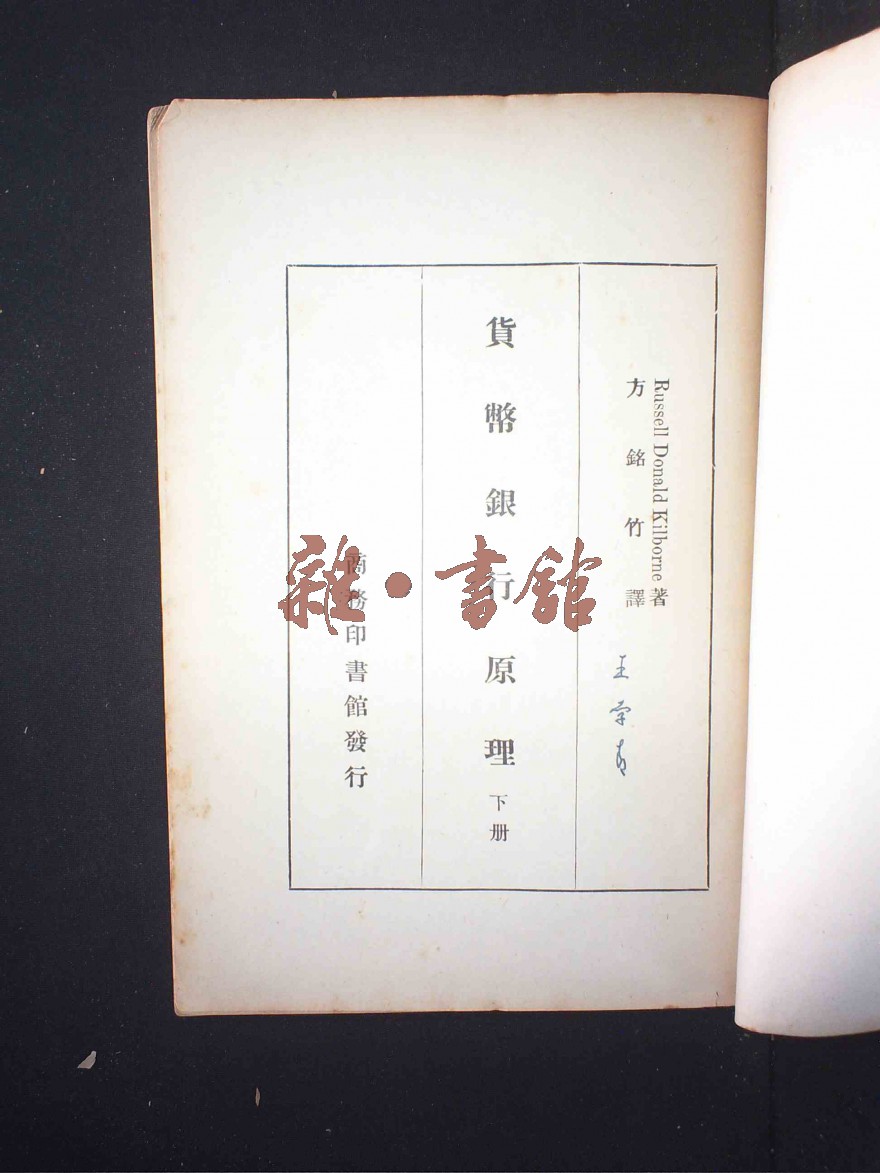 Russell Donald Kilborne 著
方銘竹譯
貨幣銀行原理 下册
商務印書館發行
雜·書館